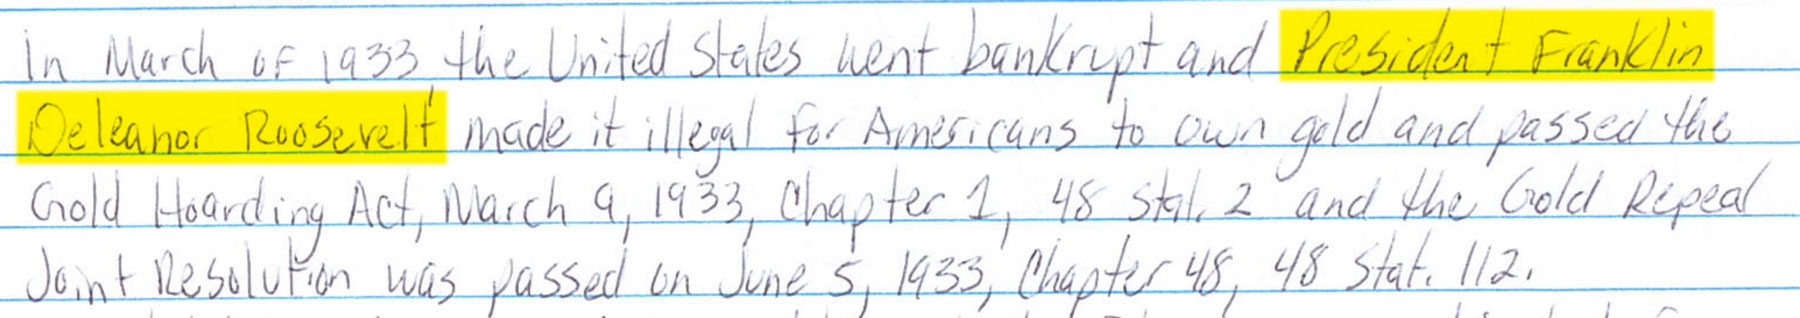 In March of 1933 the United States went bankrupt and President Franklin
Deleanor Roosevelt made it illegal for Americans to own gold and passed the
Gold Hoarding Act, March 9, 1933, Chapter 1, 48 Stat. 2 and the Gold Repeal
Joint Resolution was passed on June 5, 1933, Chapter 48, 48 Stat. 112.